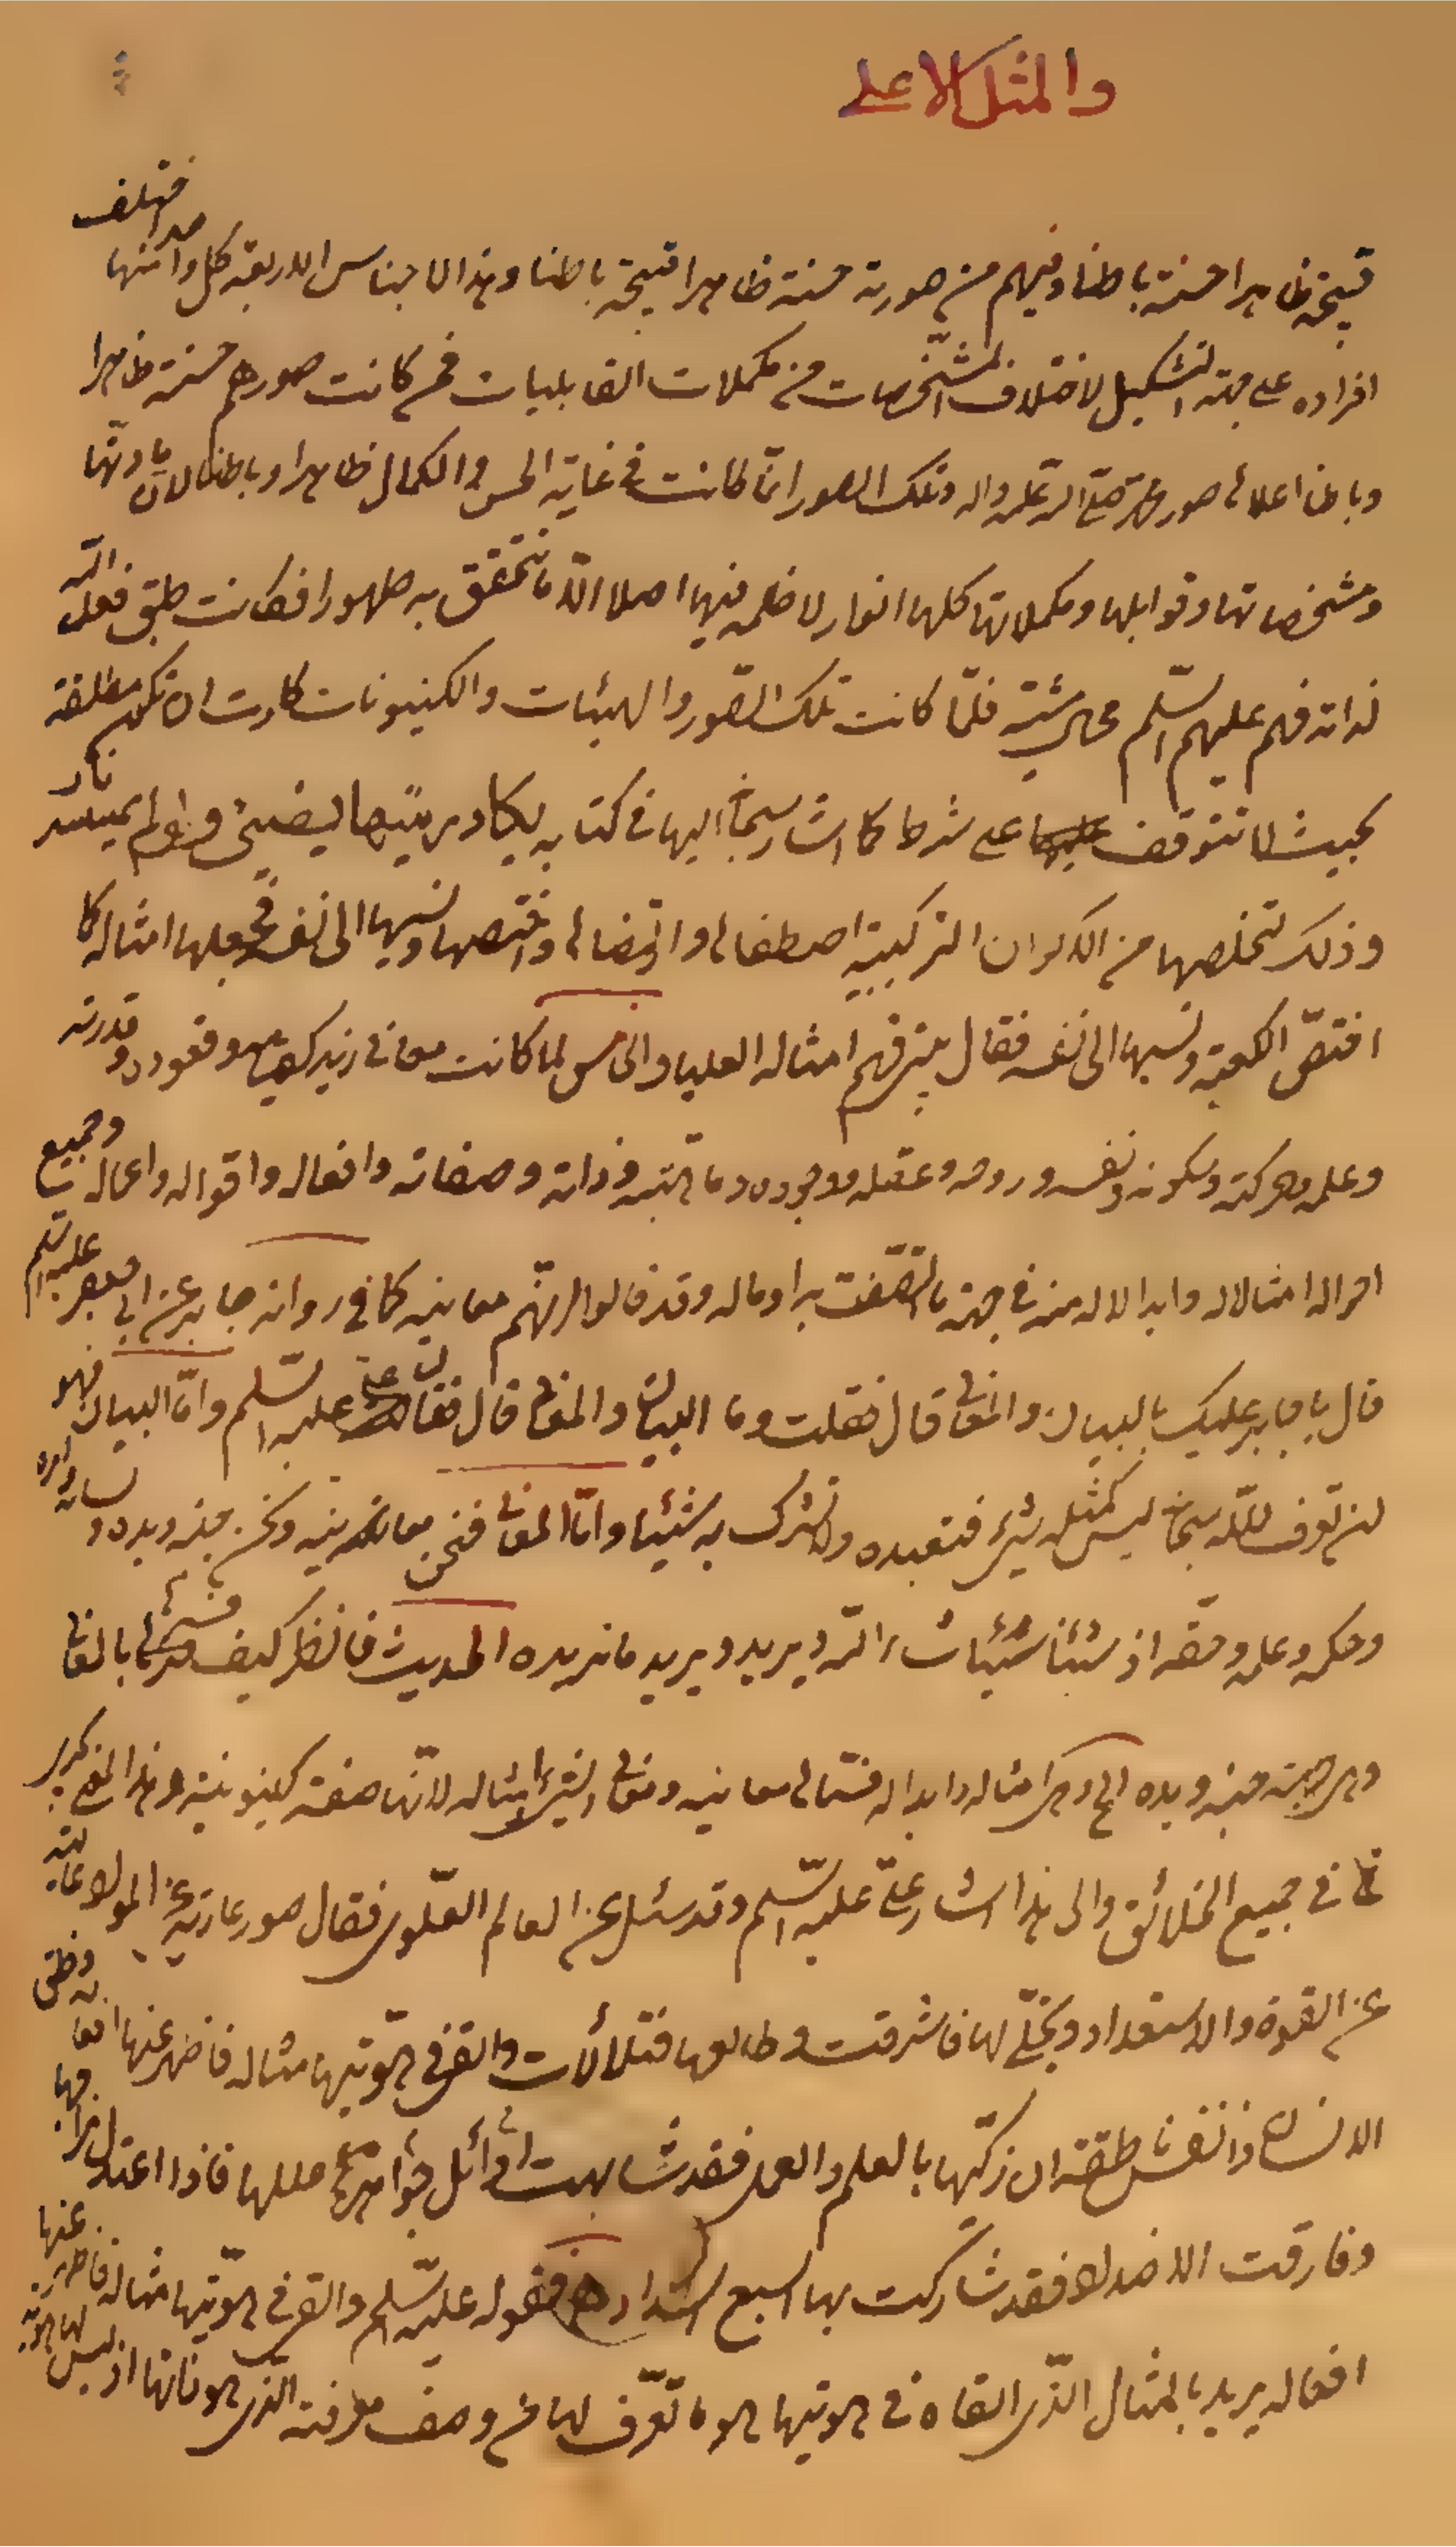 والمثل الاعلى
قبيحة ظاهرا حسنة باطنا وفيهم من صورته حسنة ظاهرا قبيحة باطنا وهذه الاجناس الاربعة كل واحد منها تختلف
افراده على جهة التشكيل لاختلاف المشخصات من مكملات القابليات فمن كانت صورهم حسنة ظاهرا
وباطنا اعلاها صور محمد صلى الله عليه واله وتلك الصور انما كانت في غاية الحسن والكمال ظاهرا وباطنا لان مادتها
ومشخصاتها وقوابلها ومكملاتها كلها انوار لا ظلمة فيها اصلا الا ما تتحقق به ظهورا فكانت طبق فعل الله
لذاته فهم عليهم السلم محال مشيته فلما كانت تلك الصور والهيئات والكينونات كادت ان تكون مطلقة
بحيث لا تتوقف على شرط كما اشار سبحانه اليها في كتابه يكاد زيتها يضيئ ولو لم تمسسه نار
وذلك لتخلصها من الاكوان التركيبية اصطفاها وارتضاها واختصها ونسبها الى نفسه فجعلها امثاله كما
اختص الكعبة ونسبها الى نفسه فقال بيتي فهم امثاله العليا والخامس لما كانت معاني زيد كقيامه وقعوده وقدرته
وعلمه وحركته وسكونه ونفسه وروحه وعقله ووجوده وما هيته وذاته وصفاته وافعاله واقواله واعماله وجميع
احواله امثالا له وابدالا له منه في جهة ما اتصفت به اوماله وقد قالوا انهم معانيه كما في رواية جابر عن ابي جعفر عليه السلم
قال يا جابر عليك بالبيان والمعاني قال فقلت وما البيان والمعاني قال فقال علي عليه السلم واما البيان فهو
ان تعرف الله سبحانه ليس كمثله شيء فتعبده ولا تشرك به شيئا واما المعاني فنحن معانيه ونحن جنبه ويده ولسانه وامره
وحكمه وعلمه وحقه اذ شئنا شاء الله ويريد ما نريده الحديث فانظر كيف فسرها بالمعاني
وهي جنبه ويده الخ وهي امثاله وابداله فسماها معانيه ومعاني الشيء امثاله لانها صفة كينونيته وهذا المعنى
في جميع الخلائق والى هذا اشار علي عليه السلم وقد سئل عن العالم العلوي فقال صور عارية عن المواد عالية
عن القوة والاستعداد وتجلى لها فاشرقت وطالعها فتلألأت والقى في هويتها مثاله فاظهر عنها افعاله وخلق
الانسان ذا نفس ناطقة ان زكيها بالعلم والعمل فقد شابهت اوائل جواهر عللها فاذا اعتدل مزاجها
وفارقت الاضداد فقد شاركت بها السبع الشداد فقوله عليه السلم والقى في هويتها مثاله فاظهر عنها
افعاله يريد بالمثال الذي القاه في هويتها هو ما تعرف لها به من وصف معرفته الذي هو ذاتها اذ ليس لها هوية